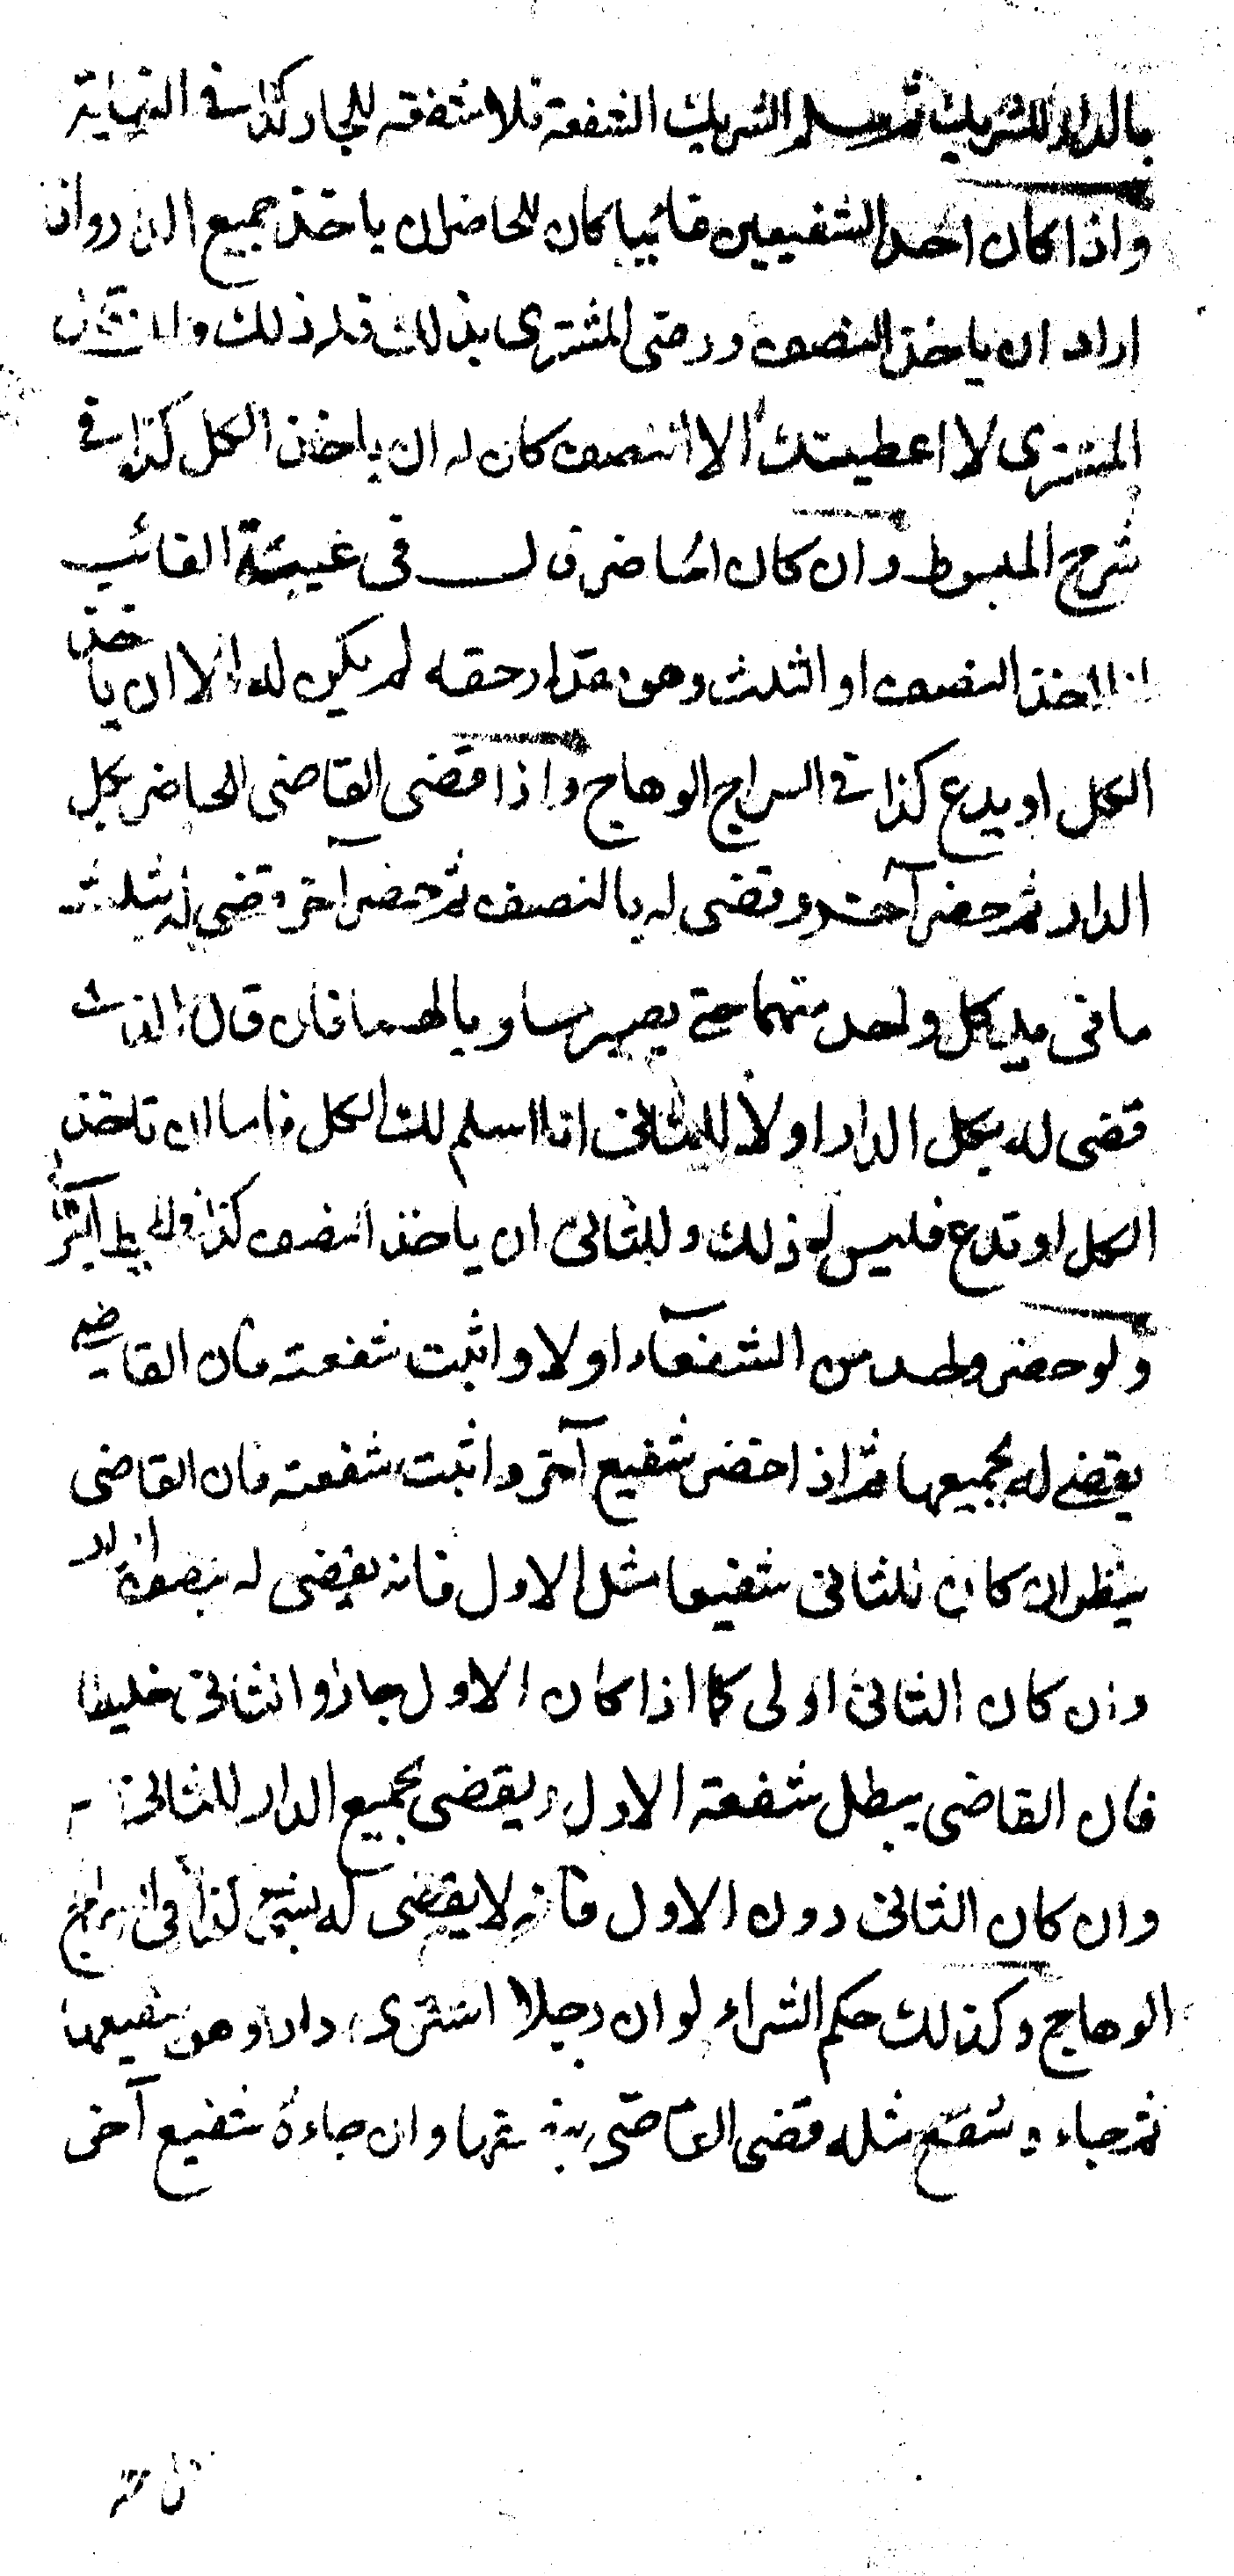 بالدار للشريك ثم سلم الشريك الشفعة فلا شفعة للجار كذا في النهاية
واذا كان احد الشفيعين غائبا كان للحاضر ان ياخذ جميع الدار وان
اراد ان ياخذ النصف ورضى المشترى بذلك فله ذلك وان قال
المشترى لا اعطيتك الا النصف كان له ان ياخذ الكل كذا في
شرح المبسوط وان كان الحاضر قال في غيبة الغائب
انا اخذ النصف او الثلث وهو مقدار حقه لم يكن له الا ان ياخذ
الكل او يدع كذا في السراج الوهاج واذا قضى القاضى الحاضر بكل
الدار ثم حضر آخر وقضى له بالنصف ثم حضر آخر وقضى له بثلث
ما فى يد كل واحد منهما حتى يصير مساويا لهما فان قال الذى
قضى له بكل الدار اولا للثانى انا اسلم لك الكل فاما ان تاخذ
الكل او تدع فليس له ذلك وللثانى ان ياخذ النصف كذا
ولو حضر واحد من الشفعاء اولا واثبت شفعته فان القاضي
يقضى له بجميعها ثم اذا حضر شفيع آخر واثبت شفعته فان القاضى
ينظر ان كان الثانى شفيعا مثل الاول فانه يقضى له بنصف الدار
وان كان الثانى اولى كما اذا كان الاول جارا والثانى خليطا
فان القاضى يبطل شفعة الاول ويقضى بجميع الدار للثانى
وان كان الثانى دون الاول فانه لا يقضى له بشئ كذا فى السراج
الوهاج وكذلك حكم الشراء لو ان رجلا اشترى دارا وهو شفيعها
ثم جاء شفيع مثله قضى القاضى بنصفها وان جاءه شفيع آخر